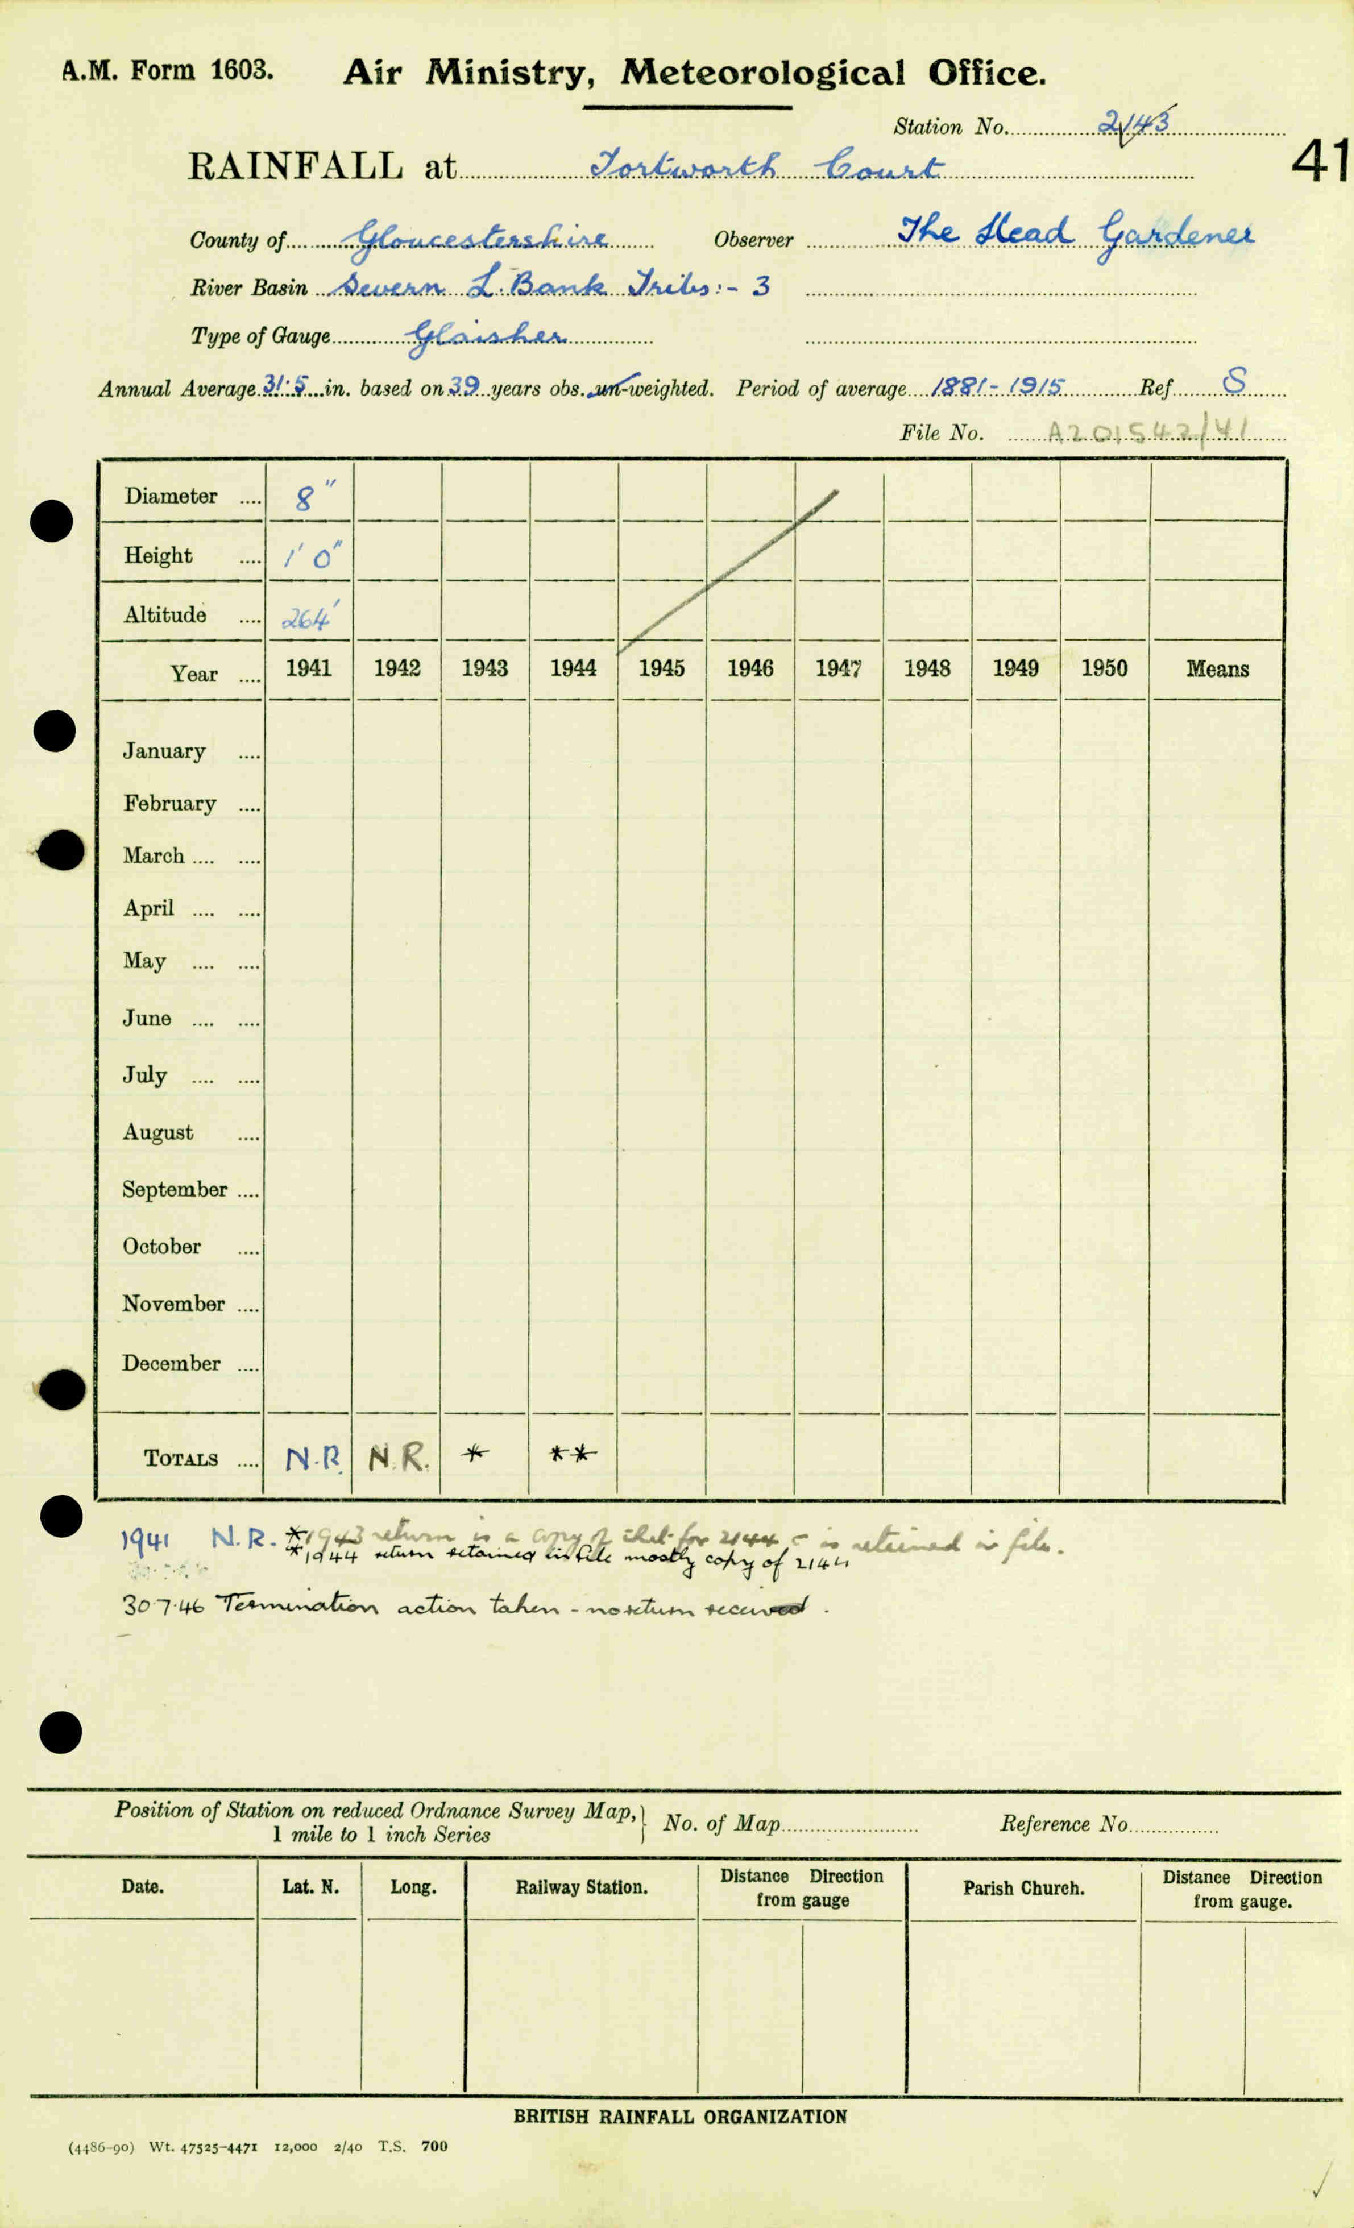 A.M. Form 1603. Air Ministry, Meteorological Office.
Station No. 2143
RAINFALL at Tortworth Court
41
County of Gloucestershire Observer The Head Gardener
River Basin Severn L. Bank Tribs:- 3
Type of Gauge Glaisher
Annual Average 31.5 in. based on 39 years obs. un-weighted. Period of average 1881-1915 Ref. S
File No. A201542/41
Diameter .... 8"
Height .... 1' 0"
Altitude .... 264'
Year .... 1941 1942 1943 1944 1945 1946 1947 1948 1949 1950 Means
January ....
February ....
March .... ....
April .... ....
May .... ....
June .... ....
July .... ....
August ....
September ....
October ....
November ....
December ....
TOTALS .... N.R. N.R. * **
1941 N.R. *1943 return is a copy of that for 2144 & is retained in file.
**1944 return retained in file mostly copy of 2144
30.7.46 Termination action taken - no return received.
Position of Station on reduced Ordnance Survey Map, 1 mile to 1 inch Series } No. of Map Reference No.
Date. Lat. N. Long. Railway Station. Distance Direction from gauge Parish Church. Distance Direction from gauge.
BRITISH RAINFALL ORGANIZATION
(4486-90) Wt. 47525-4471 12,000 2/40 T.S. 700